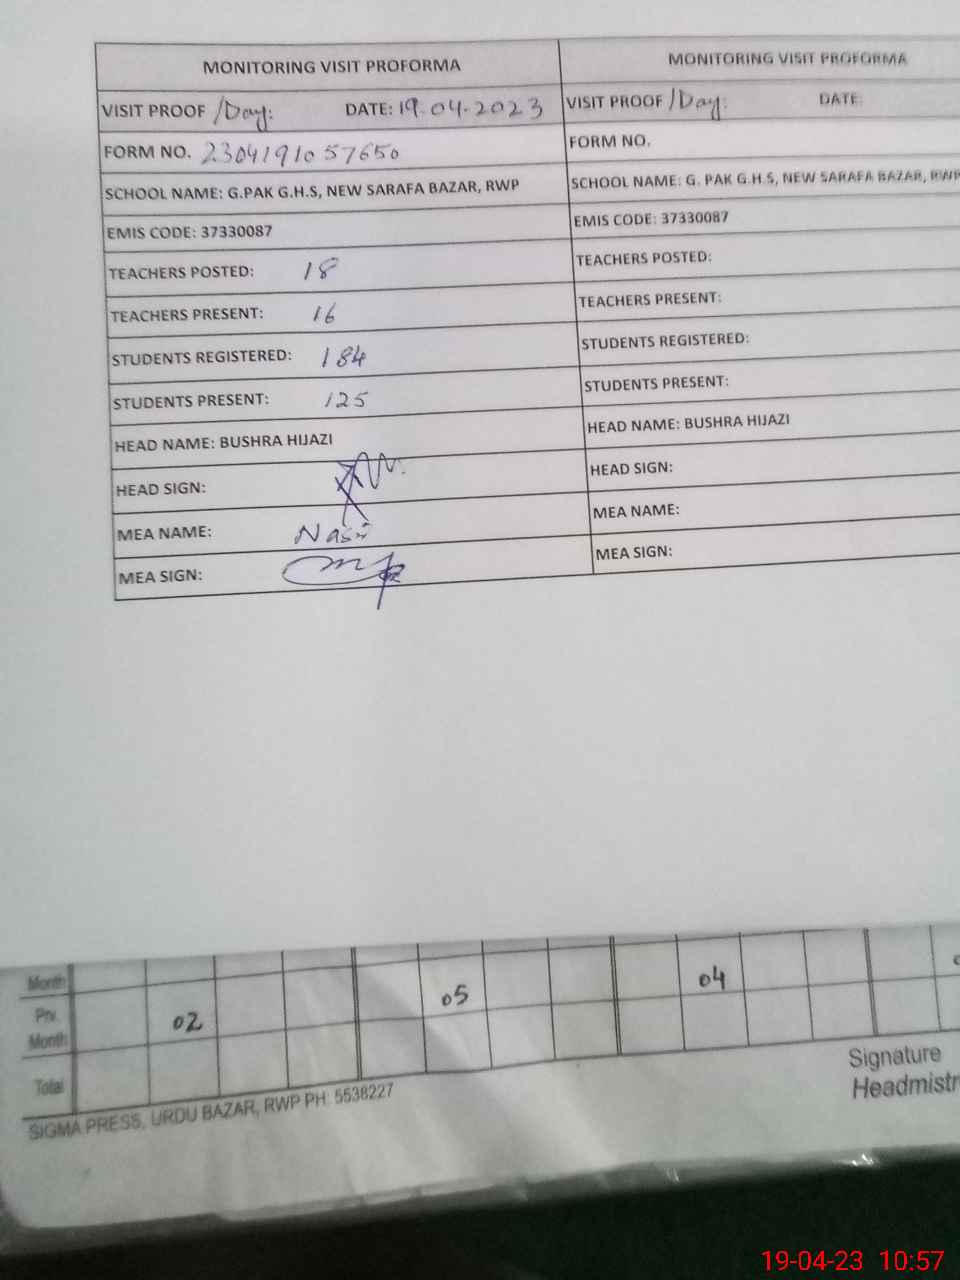 MONITORING VISIT PROFORMA
VISIT PROOF /Day: DATE: 19.04.2023
FORM NO. 2304191057650
SCHOOL NAME: G.PAK G.H.S, NEW SARAFA BAZAR, RWP
EMIS CODE: 37330087
TEACHERS POSTED: 18
TEACHERS PRESENT: 16
STUDENTS REGISTERED: 184
STUDENTS PRESENT: 125
HEAD NAME: BUSHRA HIJAZI
HEAD SIGN:
MEA NAME: Nasir
MEA SIGN:
MONITORING VISIT PROFORMA
VISIT PROOF /Day: DATE:
FORM NO.
SCHOOL NAME: G. PAK G.H.S, NEW SARAFA BAZAR, RWP
EMIS CODE: 37330087
TEACHERS POSTED:
TEACHERS PRESENT:
STUDENTS REGISTERED:
STUDENTS PRESENT:
HEAD NAME: BUSHRA HIJAZI
HEAD SIGN:
MEA NAME:
MEA SIGN:
Month
05 04
Prv. 02
Month
Total
Signature
Headmistr
SIGMA PRESS, URDU BAZAR, RWP PH: 5538227
19-04-23 10:57